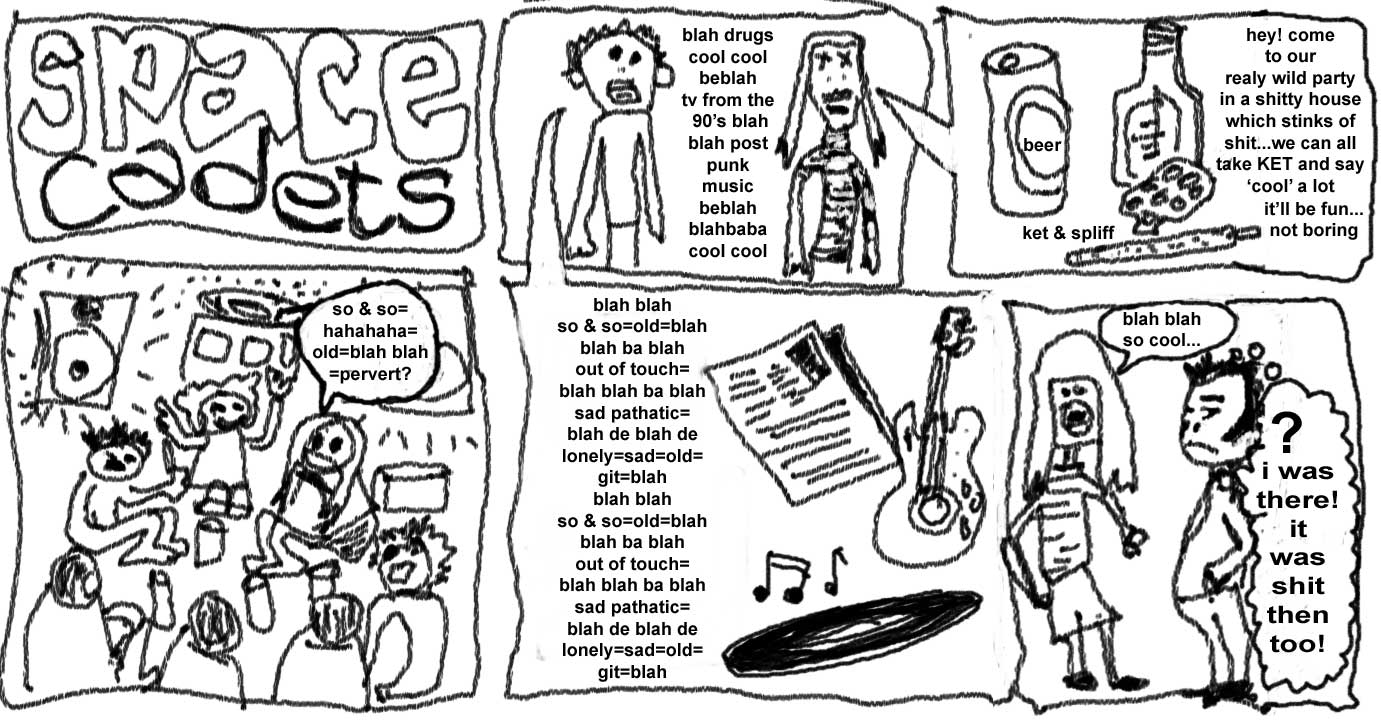 space
cadets
blah drugs
cool cool
beblah
tv from the
90's blah
blah post
punk
music
beblah
blahbaba
cool cool
hey! come
to our
realy wild party
in a shitty house
which stinks of
shit...we can all
take KET and say
‘cool’ a lot
it’ll be fun...
not boring
beer
ket & spliff
so & so=
hahahaha=
old=blah blah
=pervert?
blah blah
so & so=old=blah
blah ba blah
out of touch=
blah blah ba blah
sad pathatic=
blah de blah de
lonely=sad=old=
git=blah
blah blah
so & so=old=blah
blah ba blah
out of touch=
blah blah ba blah
sad pathatic=
blah de blah de
lonely=sad=old=
git=blah
blah blah
so cool...
?
i was
there!
it
was
shit
then
too!